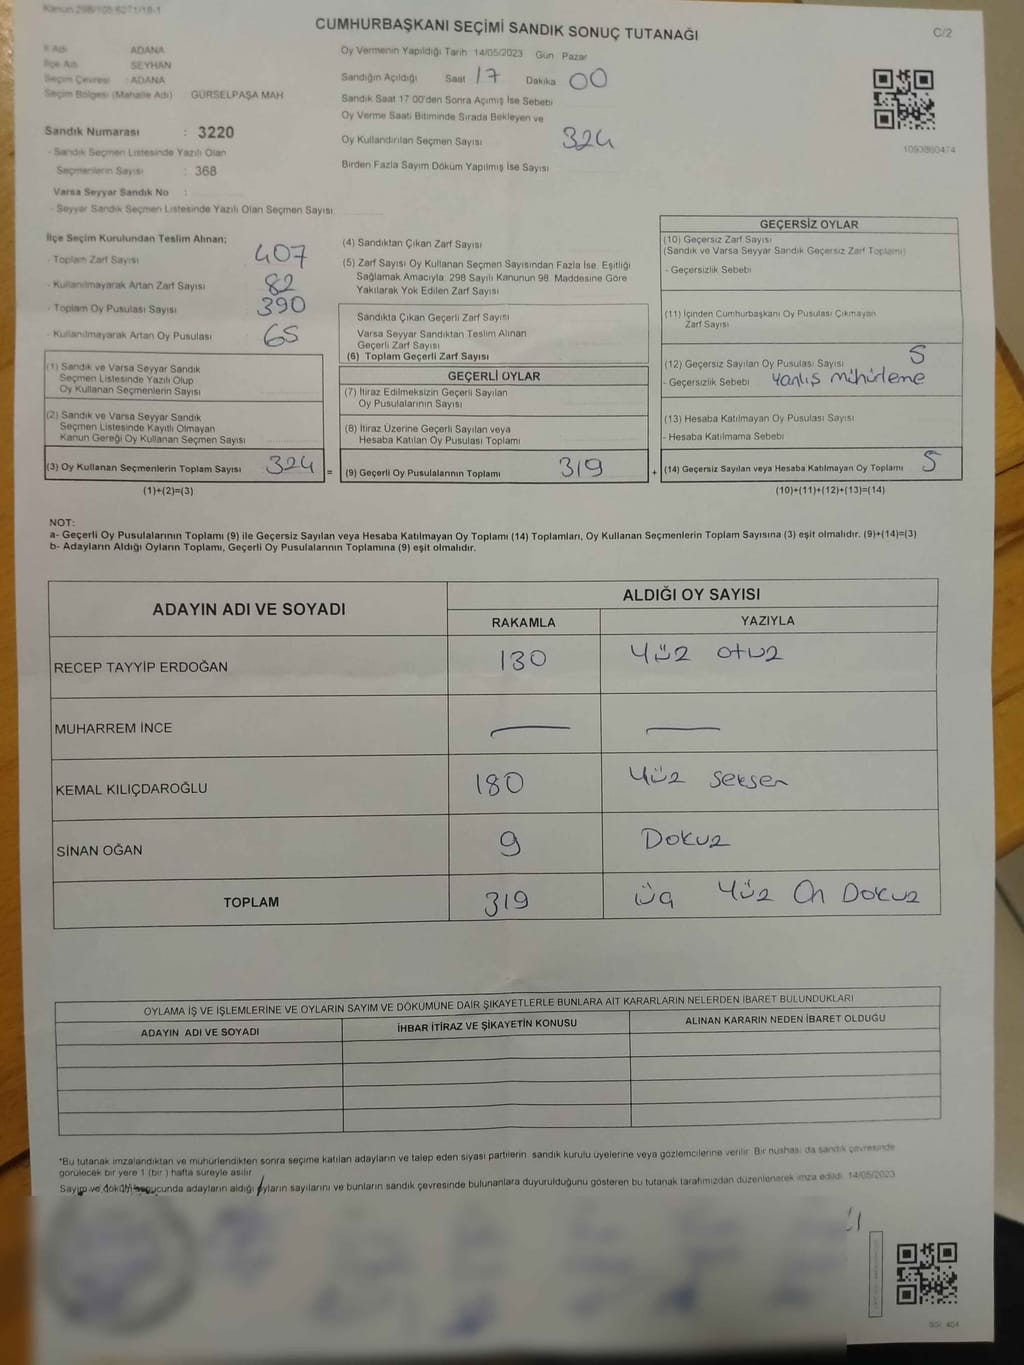 Kanun 298/105 6271/18-1
CUMHURBAŞKANI SEÇİMİ SANDIK SONUÇ TUTANAĞI
C/2
İl Adı ADANA
İlçe Adı SEYHAN
Seçim Çevresi : ADANA
Seçim Bölgesi (Mahalle Adı) GÜRSELPAŞA MAH
Sandık Numarası : 3220
- Sandık Seçmen Listesinde Yazılı Olan
Seçmenlerin Sayısı : 368
Varsa Seyyar Sandık No :
- Seyyar Sandık Seçmen Listesinde Yazılı Olan Seçmen Sayısı
Oy Vermenin Yapıldığı Tarih 14/05/2023 Gün Pazar
Sandığın Açıldığı Saat 17 Dakika 00
Sandık Saat 17 00'den Sonra Açımış İse Sebebi
Oy Verme Saati Bitiminde Sırada Bekleyen ve
Oy Kullandırılan Seçmen Sayısı 324
Birden Fazla Sayım Döküm Yapılmış İse Sayısı
1093860474
İlçe Seçim Kurulundan Teslim Alınan;
- Toplam Zarf Sayısı 407
- Kullanılmayarak Artan Zarf Sayısı 82
- Toplam Oy Pusulası Sayısı 390
- Kullanılmayarak Artan Oy Pusulası 65
(1) Sandık ve Varsa Seyyar Sandık
Seçmen Listesinde Yazılı Olup
Oy Kullanan Seçmenlerin Sayısı
(2) Sandık ve Varsa Seyyar Sandık
Seçmen Listesinde Kayıtlı Olmayan
Kanun Gereği Oy Kullanan Seçmen Sayısı
(3) Oy Kullanan Seçmenlerin Toplam Sayısı 324
(1)+(2)=(3)
(4) Sandıktan Çıkan Zarf Sayısı
(5) Zarf Sayısı Oy Kullanan Seçmen Sayısından Fazla İse, Eşitliği
Sağlamak Amacıyla, 298 Sayılı Kanunun 98. Maddesine Göre
Yakılarak Yok Edilen Zarf Sayısı
Sandıkta Çıkan Geçerli Zarf Sayısı
Varsa Seyyar Sandıktan Teslim Alınan
Geçerli Zarf Sayısı
(6) Toplam Geçerli Zarf Sayısı
GEÇERLİ OYLAR
(7) İtiraz Edilmeksizin Geçerli Sayılan
Oy Pusulalarının Sayısı
(8) İtiraz Üzerine Geçerli Sayılan veya
Hesaba Katılan Oy Pusulası Toplamı
= (9) Geçerli Oy Pusulalarının Toplamı 319
GEÇERSİZ OYLAR
(10) Geçersiz Zarf Sayısı
(Sandık ve Varsa Seyyar Sandık Geçersiz Zarf Toplamı)
- Geçersizlik Sebebi
(11) İçinden Cumhurbaşkanı Oy Pusulası Çıkmayan
Zarf Sayısı
(12) Geçersiz Sayılan Oy Pusulası Sayısı 5
- Geçersizlik Sebebi Yanlış mühürleme
(13) Hesaba Katılmayan Oy Pusulası Sayısı
- Hesaba Katılmama Sebebi
+ (14) Geçersiz Sayılan veya Hesaba Katılmayan Oy Toplamı 5
(10)+(11)+(12)+(13)=(14)
NOT:
a- Geçerli Oy Pusulalarının Toplamı (9) ile Geçersiz Sayılan veya Hesaba Katılmayan Oy Toplamı (14) Toplamları, Oy Kullanan Seçmenlerin Toplam Sayısına (3) eşit olmalıdır. (9)+(14)=(3)
b- Adayların Aldığı Oyların Toplamı, Geçerli Oy Pusulalarının Toplamına (9) eşit olmalıdır.
ADAYIN ADI VE SOYADI
ALDIĞI OY SAYISI
RAKAMLA YAZIYLA
RECEP TAYYİP ERDOĞAN 130 Yüz otuz
MUHARREM İNCE — —
KEMAL KILIÇDAROĞLU 180 Yüz seksen
SİNAN OĞAN 9 Dokuz
TOPLAM 319 Üç Yüz On Dokuz
OYLAMA İŞ VE İŞLEMLERİNE VE OYLARIN SAYIM VE DÖKÜMÜNE DAİR ŞİKAYETLERLE BUNLARA AİT KARARLARIN NELERDEN İBARET BULUNDUKLARI
ADAYIN ADI VE SOYADI İHBAR İTİRAZ VE ŞİKAYETİN KONUSU ALINAN KARARIN NEDEN İBARET OLDUĞU
*Bu tutanak imzalandıktan ve mühürlendikten sonra seçime katılan adayların ve talep eden siyasi partilerin sandık kurulu üyelerine veya gözlemcilerine verilir. Bir nushası da sandık çevresinde
görülecek bir yere 1 (bir) hafta süreyle asılır.
Sayım ve döküm sonucunda adayların aldığı oyların sayılarını ve bunların sandık çevresinde bulunanlara duyurulduğunu gösteren bu tutanak tarafımızdan düzenlenerek imza edildi. 14/05/2023